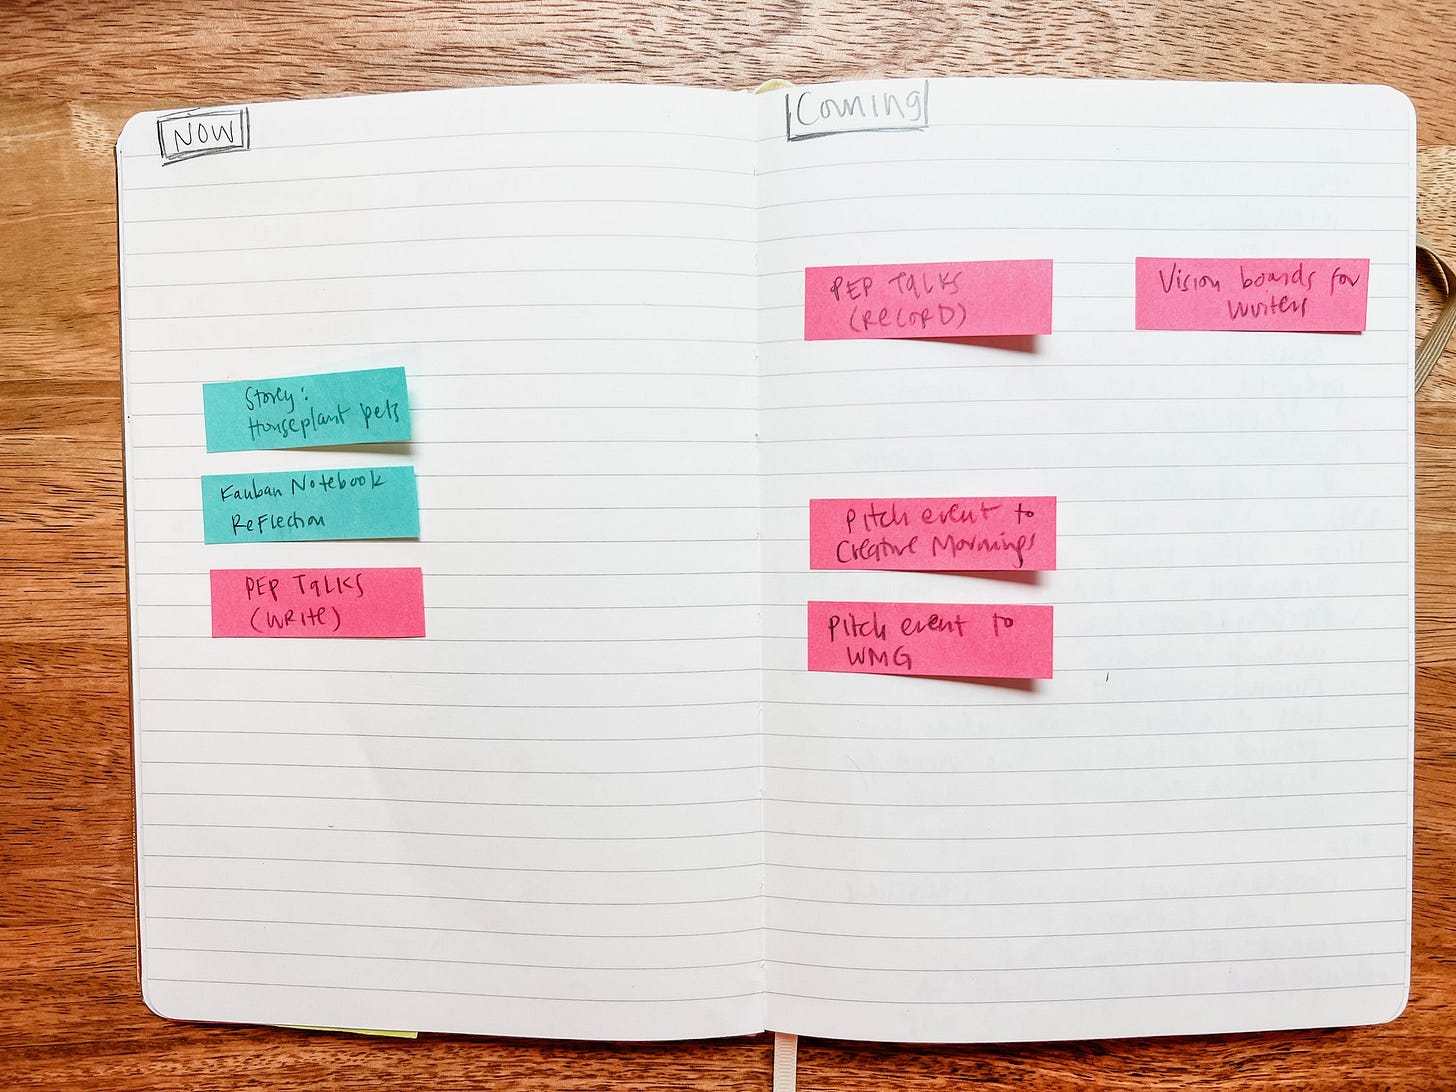 NOW
Storey:
Houseplant pets
Kanban Notebook
Reflection
PEP TALKS
(WRITE)
Coming
PEP TALKS
(RECORD)
Vision boards for
writers
Pitch event to
Creative Mornings
Pitch event to
WMG